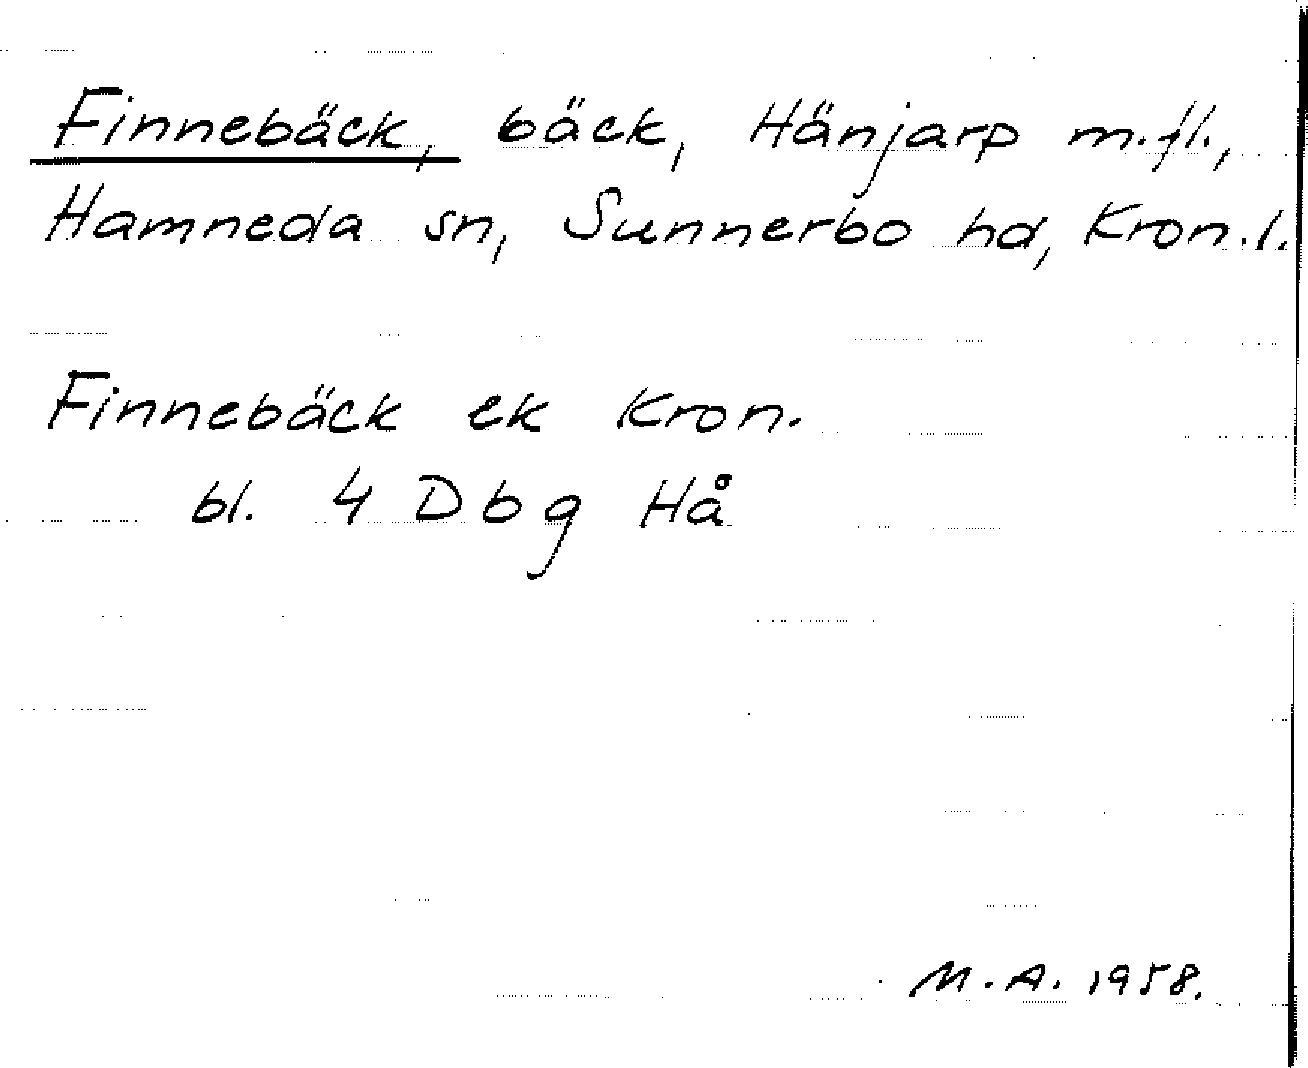 Finnebäck, bäck, Hänjarp m.fl.,
Hamneda sn, Sunnerbo hd, Kron.l.
Finnebäck ek Kron.
bl. 4 Dbg Hå
M.A. 1958.